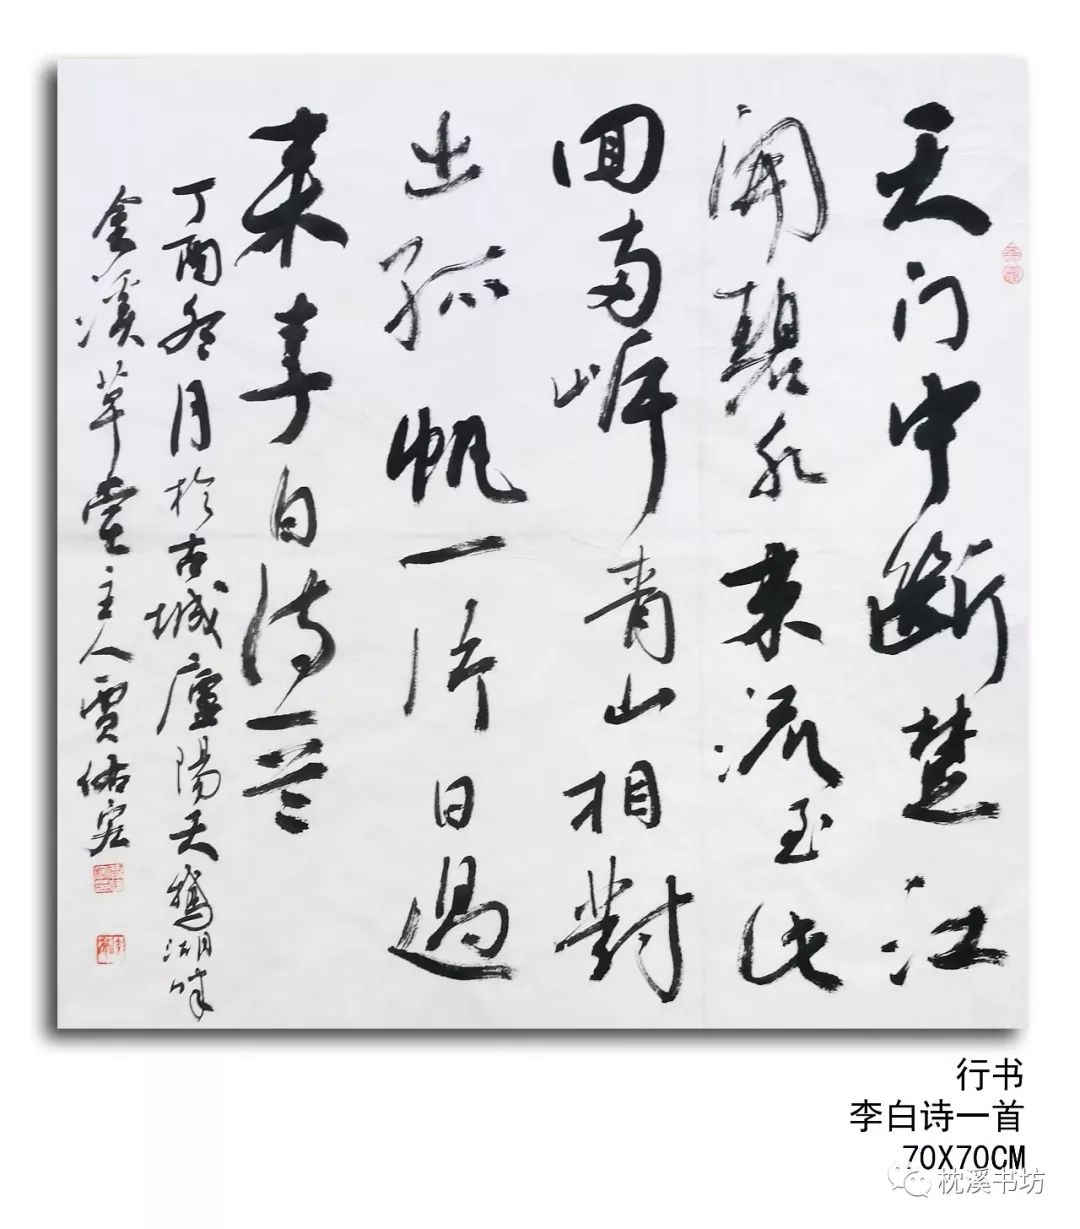 天门中斷楚江
開碧水東流至此
回兩岸青山相對
出孤帆一片日過
来李白诗一首
丁酉冬月於古城廬陽天鵝湖畔
金溪草堂主人賈佑宏
行书
李白诗一首
70X70CM
枕溪书坊